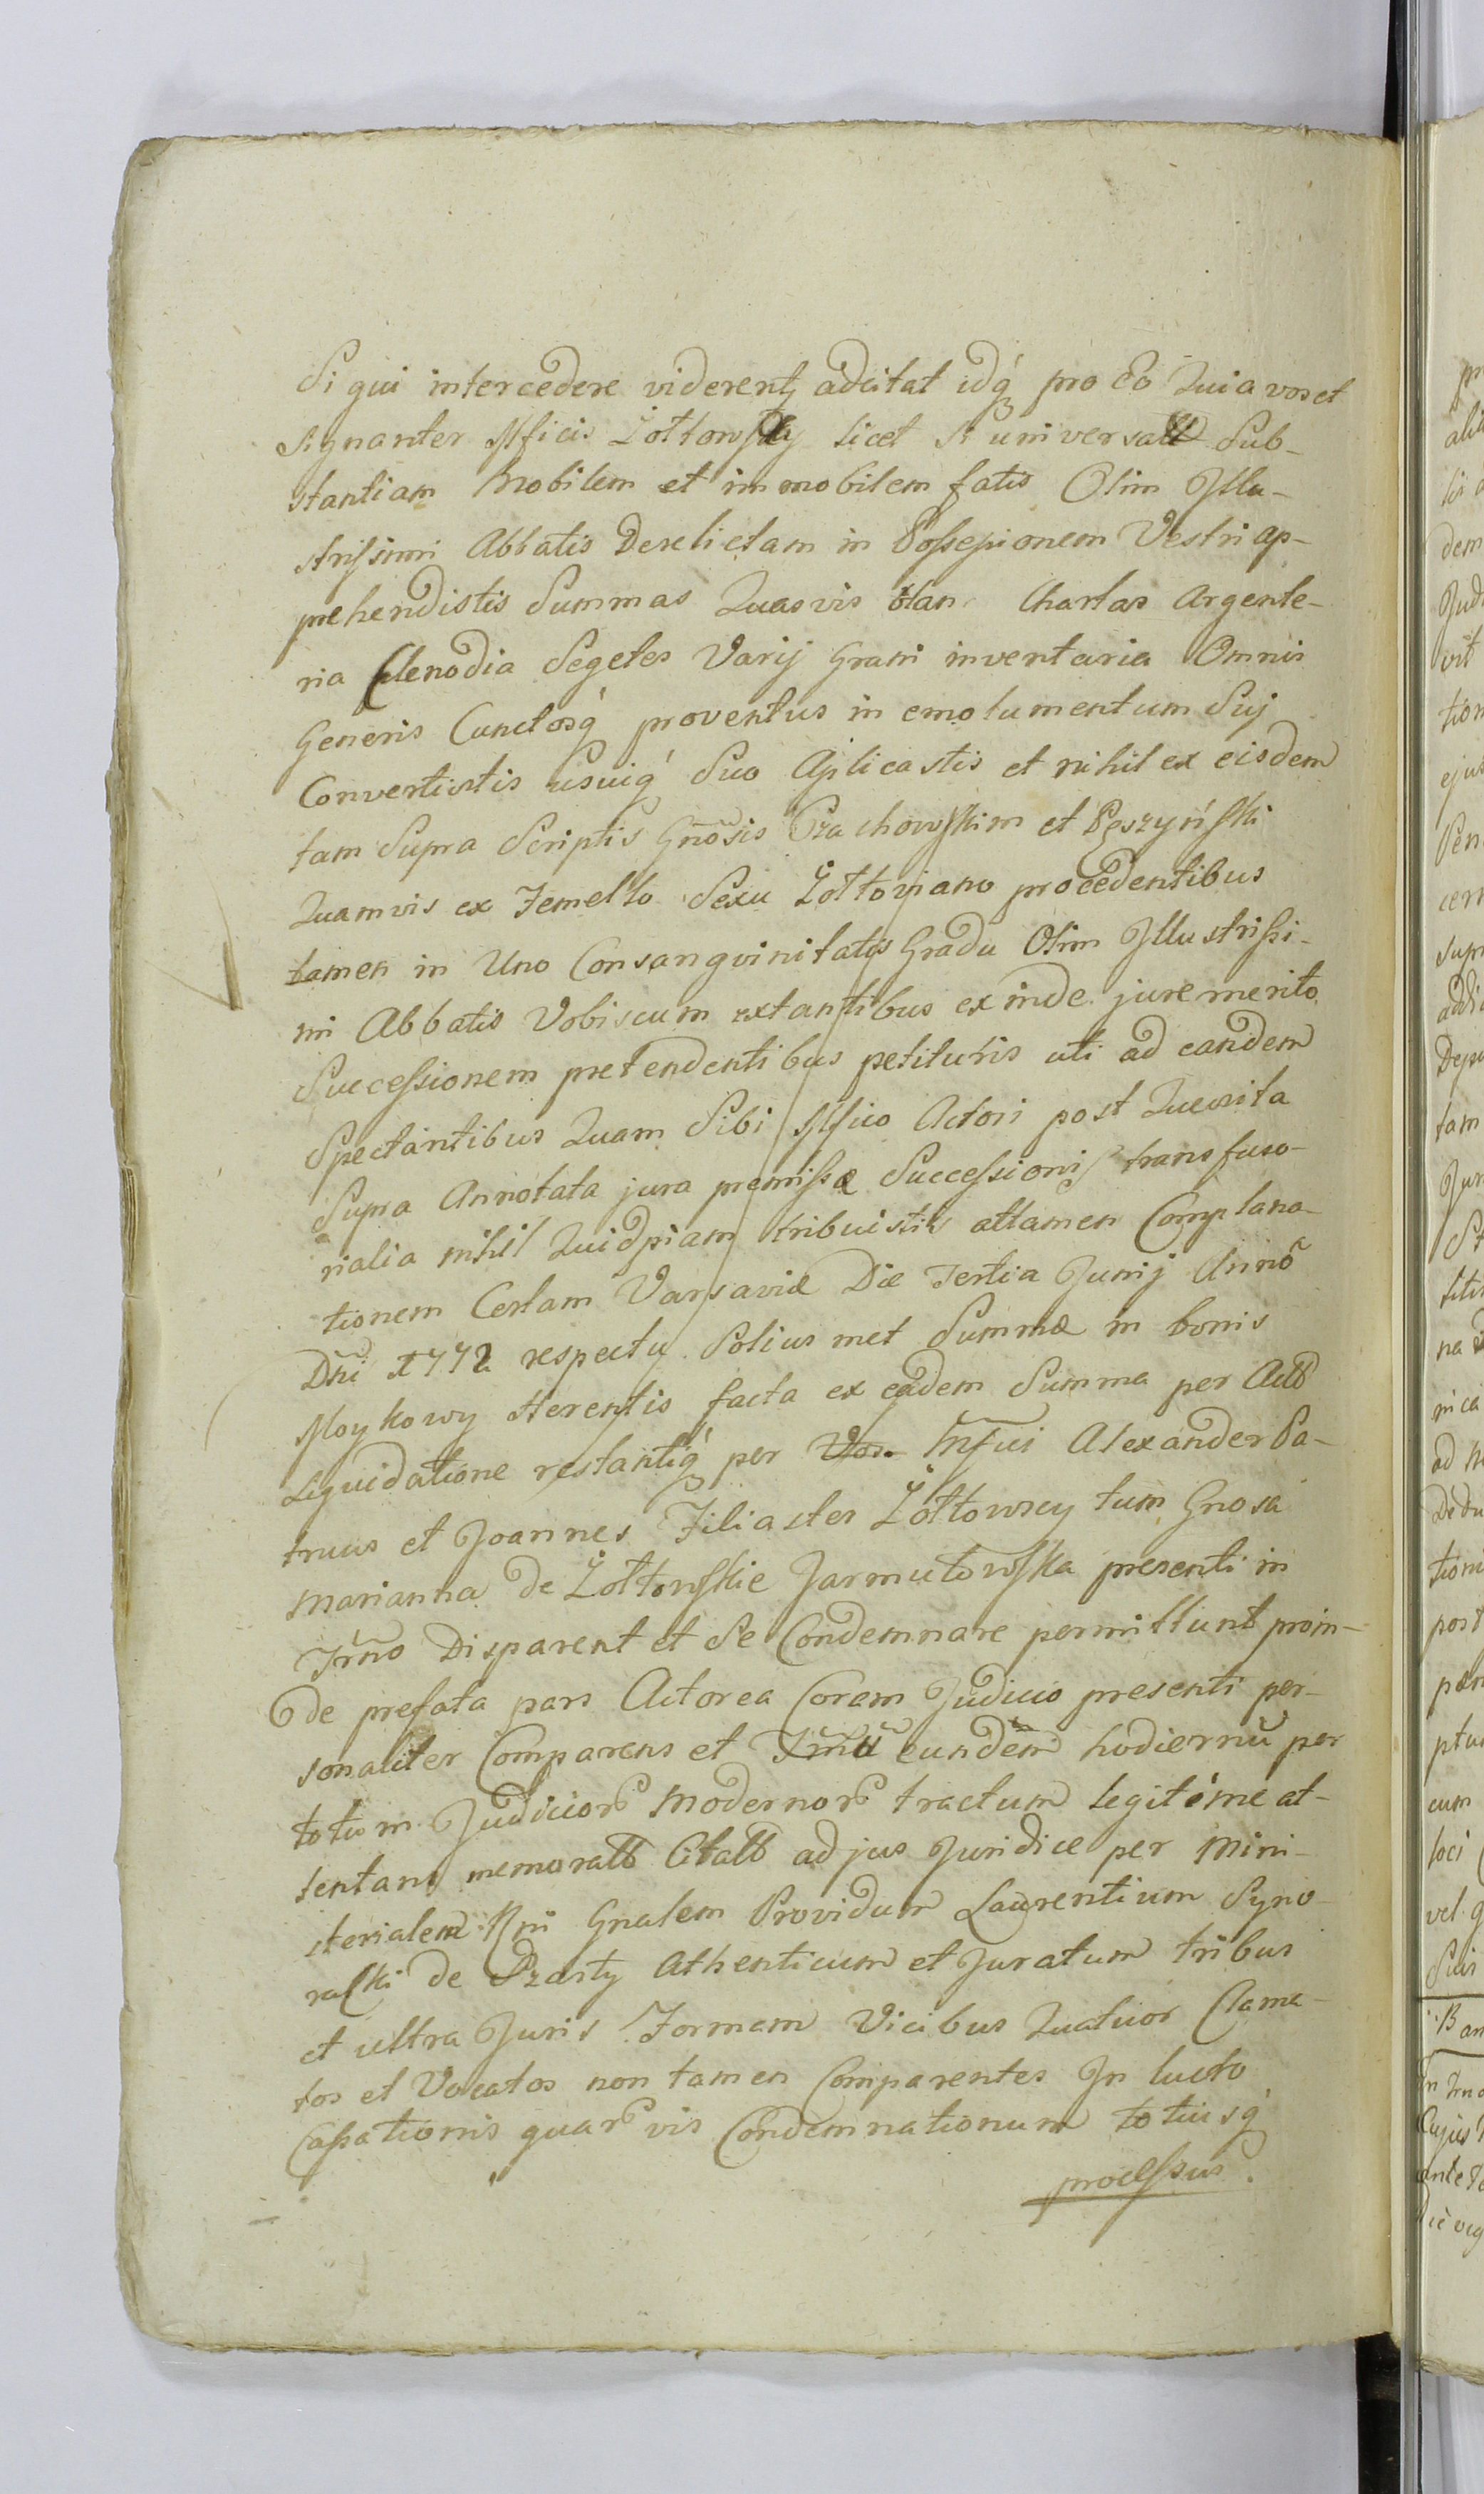 Si qui intercedere viderent adcitat idq́ pro Eo Quia vos et
signanter Mficis Żołtowscy licet si universall Sub-
stantiam Mobilem et immobilem fatis Olim Illu-
strissimi Abbatis Derelictam in Possessionem Vestri ap-
prehendistis Summas Quasvis Chartas Argente-
ria Clenodia Segetes Varij Grani inventaria Omnis
Generis Cunctosq́ proventus in emolumentum Suj
Convertistis usuiq́ Suo Aplicastis et nihil ex eisdem
tam Supra Scriptis Gnosis Czachowskim et Pęszyński
Quamvis ex Femello Sexu Żołtoviano procedentibus
tamen in Uno Consangvinitatis Gradu Olim Illustrissi-
mi Abbatis Vobiscum extantibus ex inde jure merito
Successionem pretendentibus petituris uti ad eandem
Spectantibus Quam Sibi Mfico Actori post Quesita
Supra Annotata jura premissæ Successionis transfuso-
rialia nihil Quidpiam tribuistis attamen Complana-
tionem Certam Varsaviæ Die Tertia Junij Anno
Dni 1772 respectu Solius met Summæ in bonis
Moykowy Herentis facta ex eadem Summa per Actt
Liquidatione restantiq́ per Vos Mfici Alexander Pa-
truus et Joannes Filiaster Żołtowscy tum Gnosa
Marianna de Żołtowskie Jarmułowska presenti in
Trno Disparent et Se Condemnare permittunt proin-
de prefata pars Actorea Coram Judicio presenti per-
sonaliter Comparens et Trnu eundem hodiernu per
totum Judicior Modernor tractum legitime at-
tentans memoratt Citatt ad jus Juridice per Mini-
sterialem Rni Gnalem Providum Laurentium Syno-
racki de Przasty Athenticum et Juratum tribus
et ultra Juris Formam Vicibus Quatuor Clama-
tos et Vocatos non tamen Comparentes In lucto
Cassationis quar vis Condemnationum totiusq́
processus.